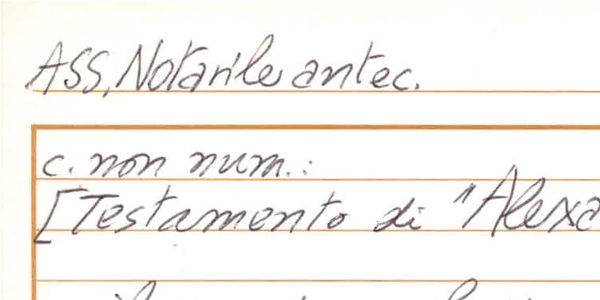 ASS, Notarile antec.
c. non num.:
[Testamento di "Alexa